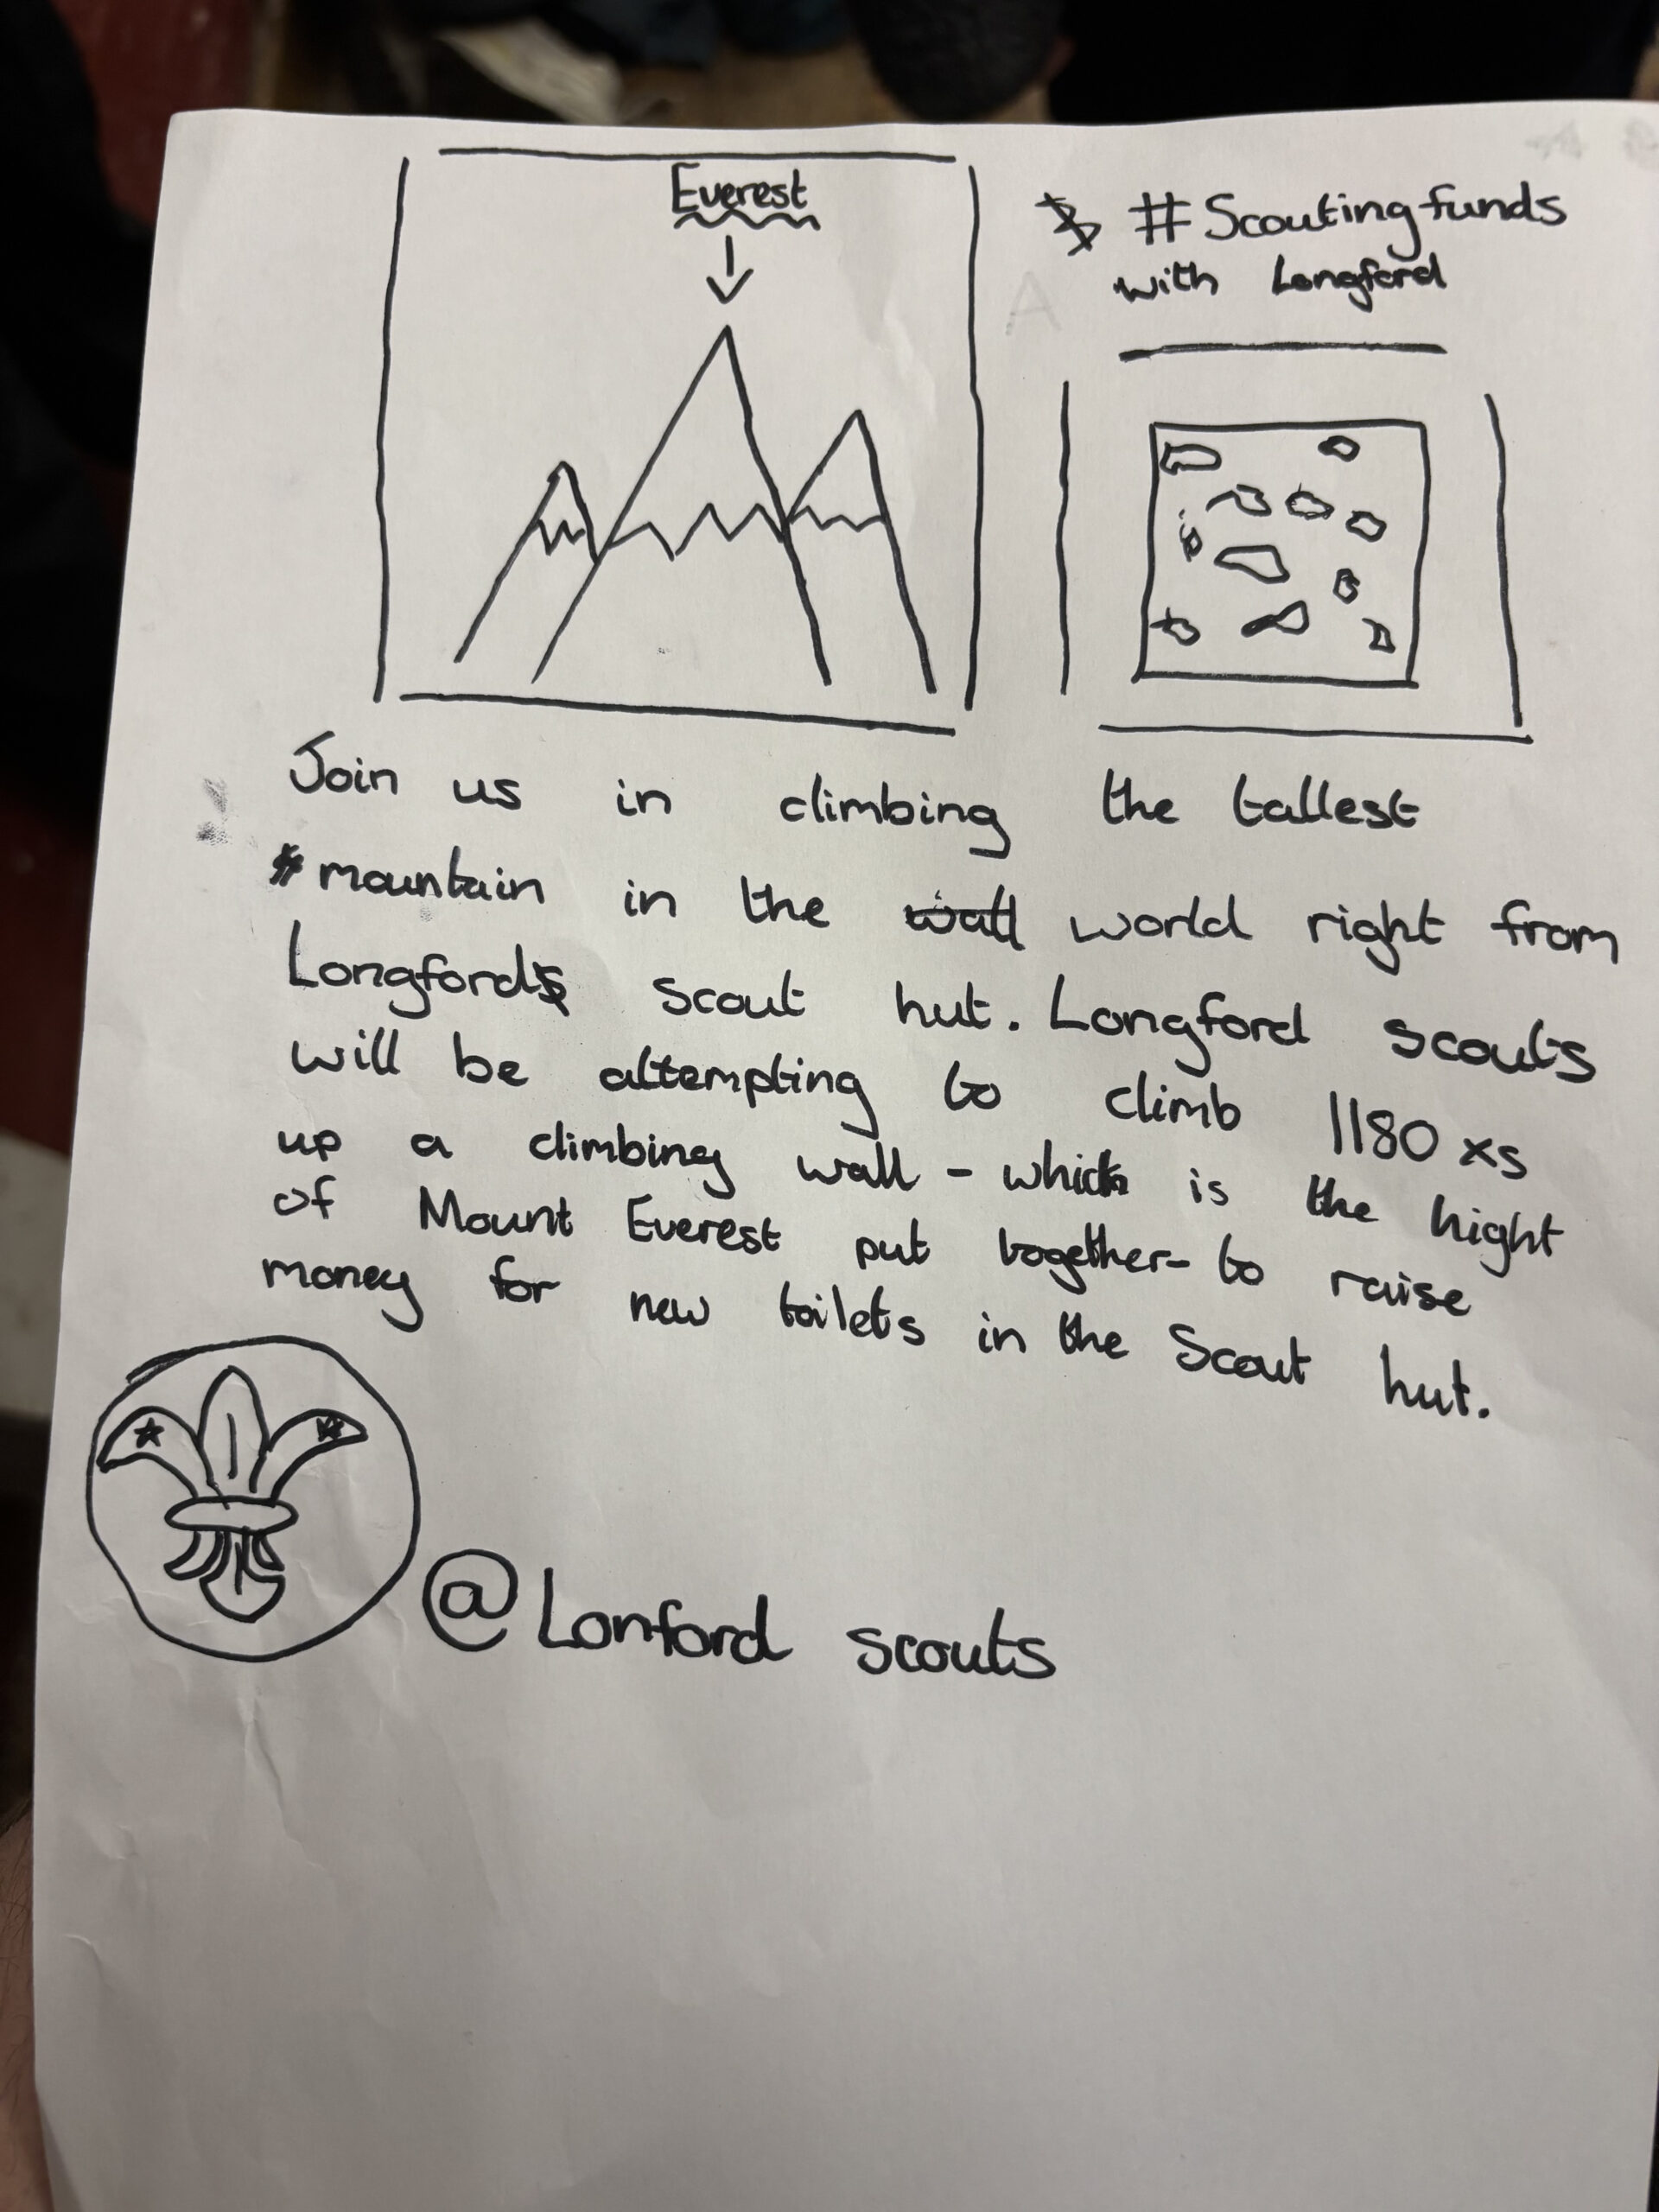 Everest
# Scoutingfunds
with Longford
Join us in climbing the tallest
mountain in the wall world right from
Longfords scout hut. Longford scouts
will be attempting to climb 1180 xs
up a climbing wall - which is the hight
of Mount Everest put together - to raise
money for new toilets in the Scout hut.
@Lonford scouts